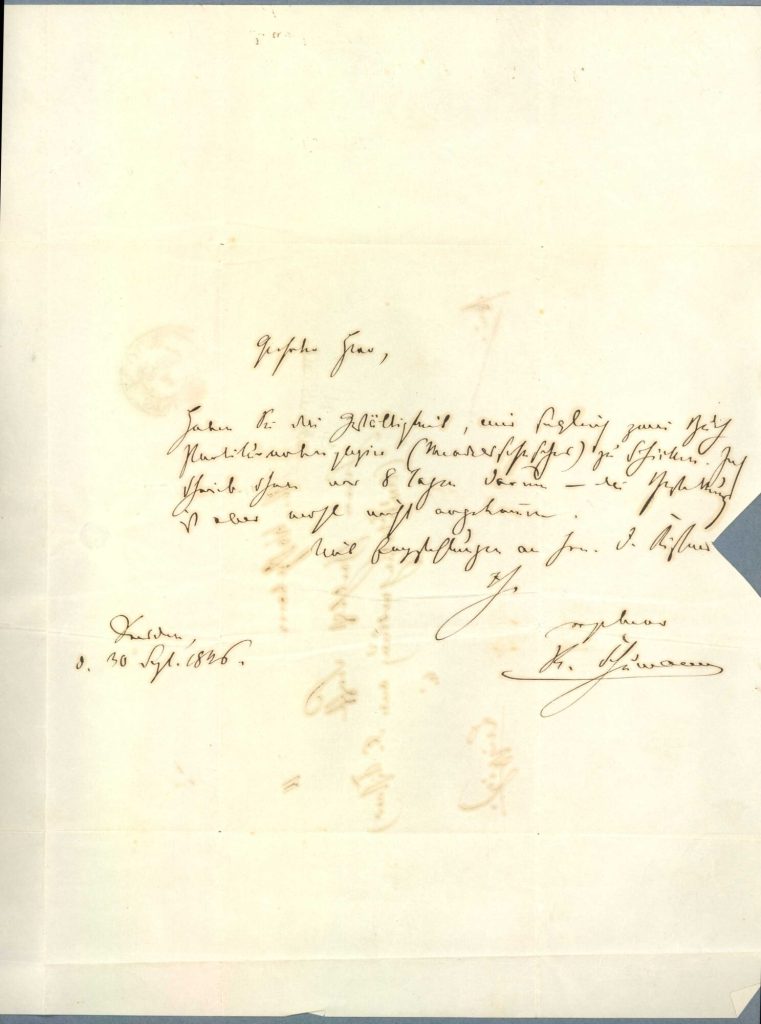 Geehrter Herr,
Haben Sie die Gefälligkeit, mir sogleich zwei Buch
Partiturnotenpapier () zu schicken. Ich
schrieb schon vor 8 Tagen darum — die Bestellung
ist aber wohl nicht angekommen.
Mit Empfehlungen an Hrn. Kistner
Ihr
ergebener
R. Schumann
Dresden,
d. 30 Sept. 1846.